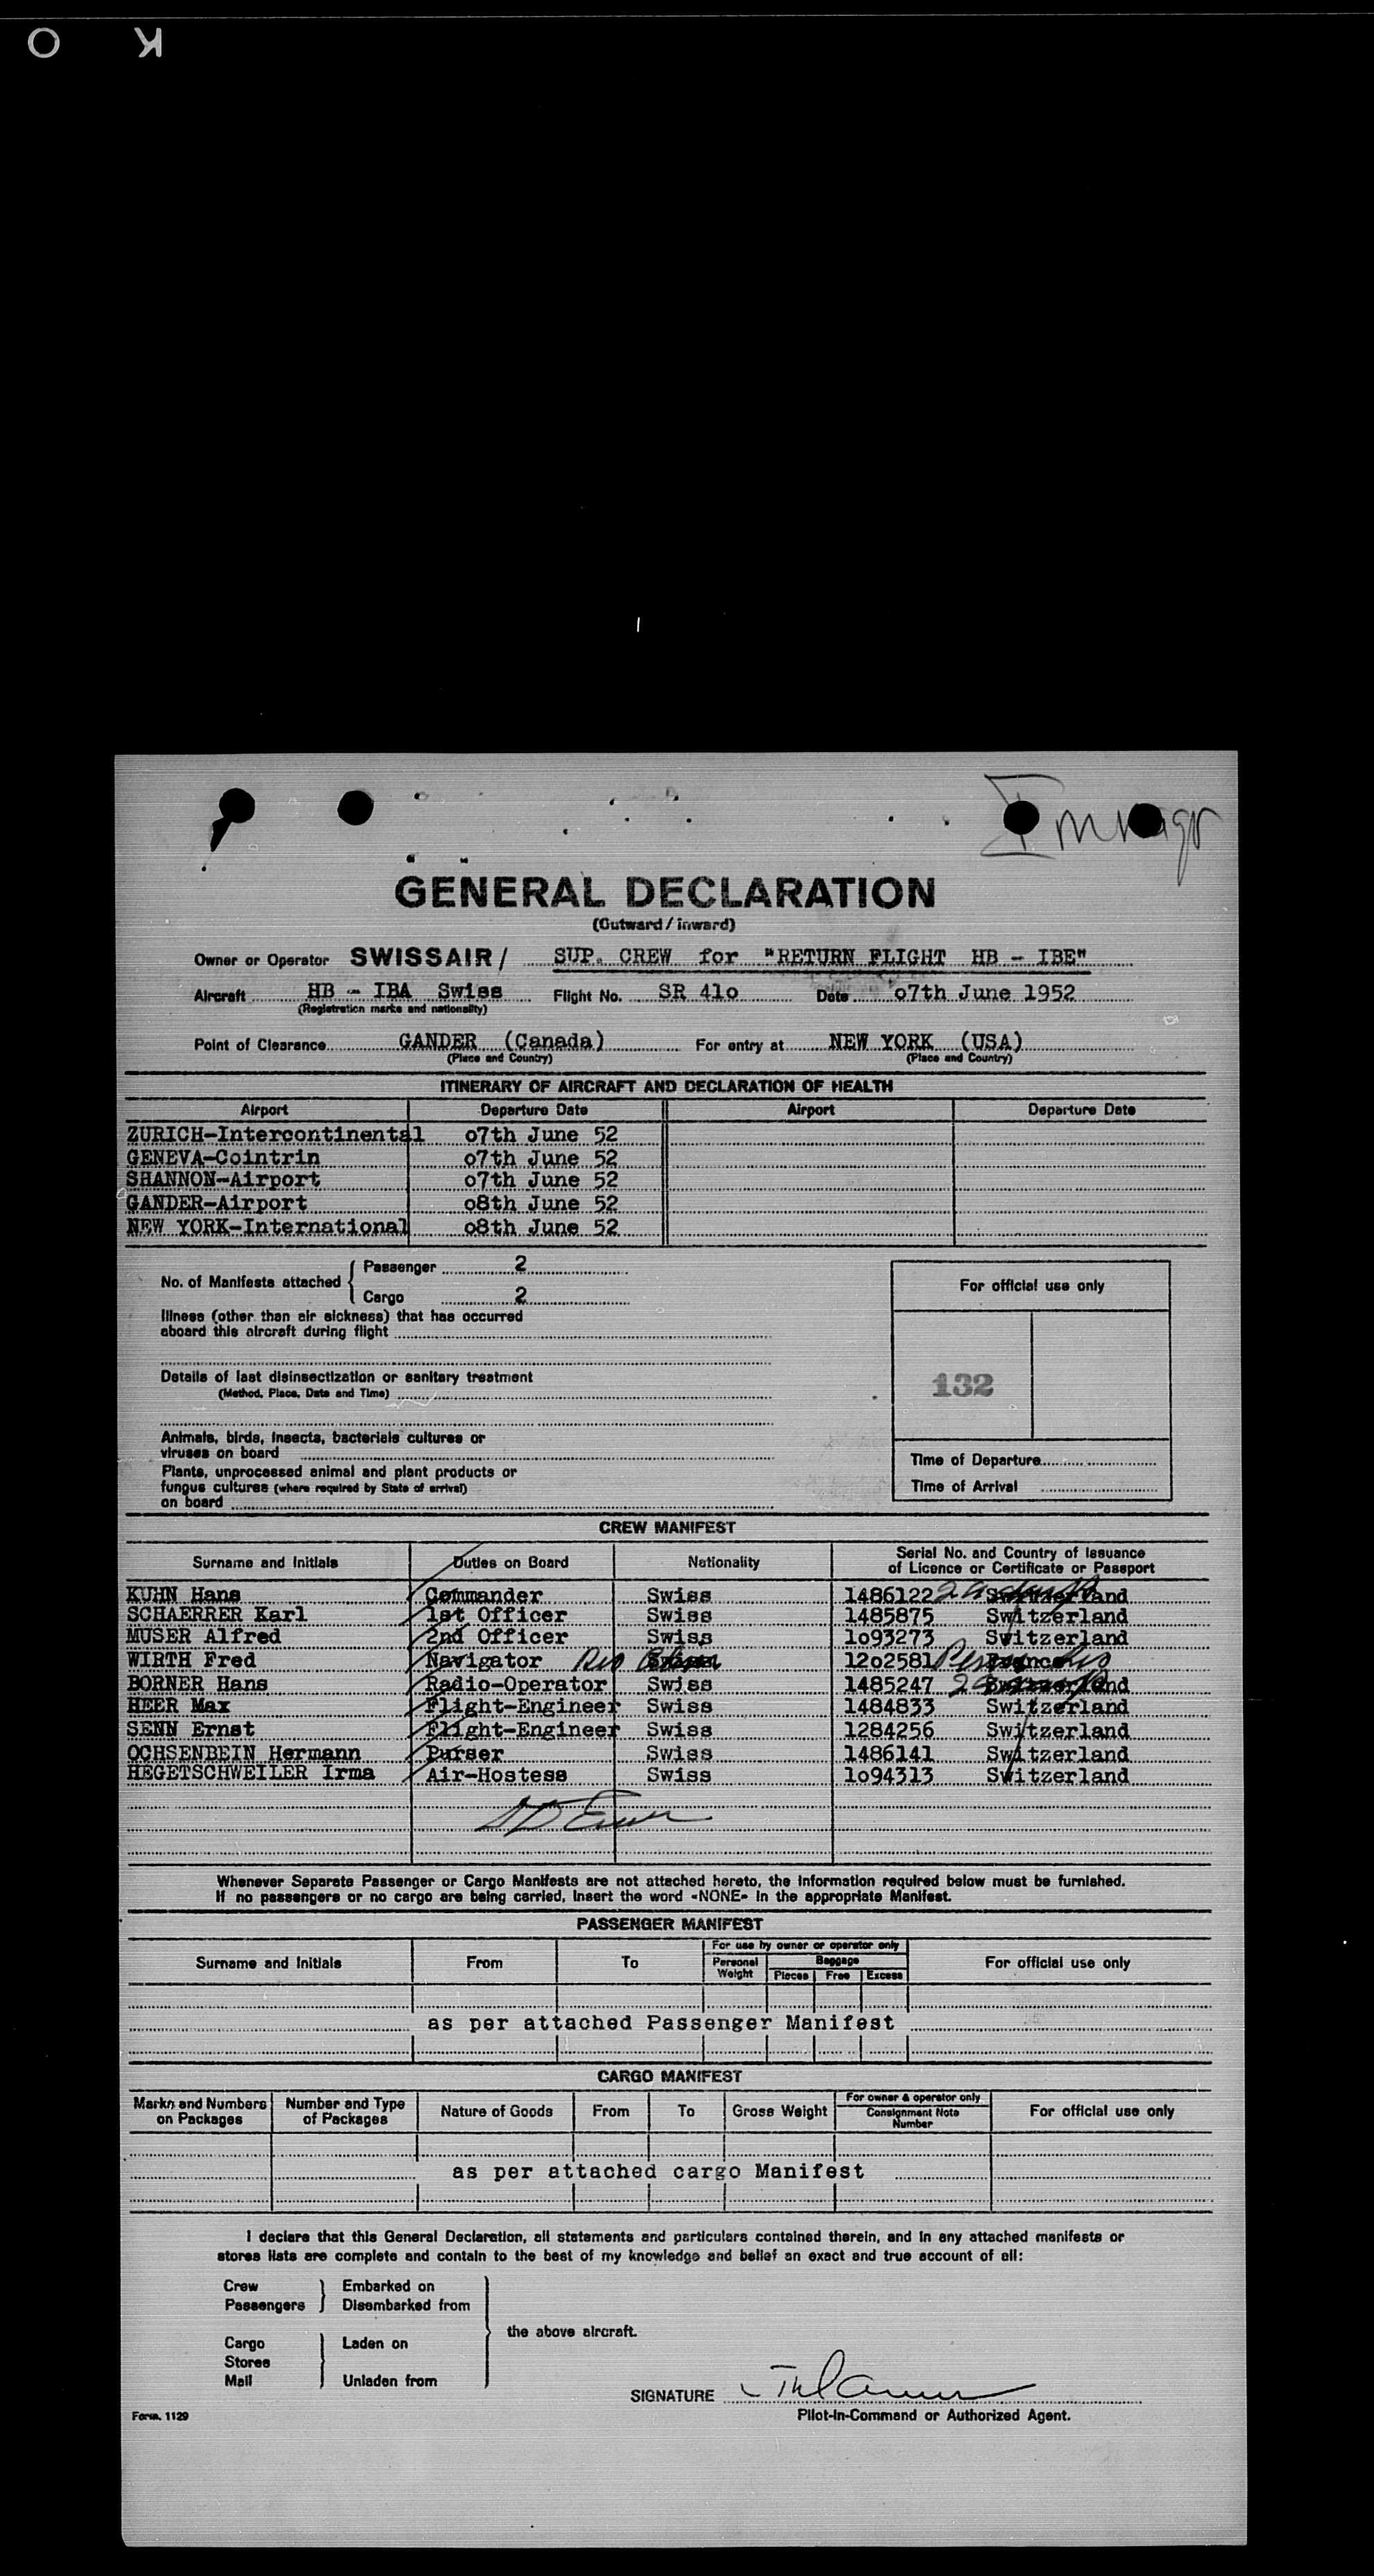 O K
Immigr
GENERAL DECLARATION
(Outward / inward)
Owner or Operator SWISSAIR / SUP. CREW for "RETURN FLIGHT HB - IBE"
Aircraft HB - IBA Swiss Flight No. SR 41o Date o7th June 1952
(Registration marks and nationality)
Point of Clearance GANDER (Canada) For entry at NEW YORK (USA)
(Place and Country) (Place and Country)
ITINERARY OF AIRCRAFT AND DECLARATION OF HEALTH
Airport Departure Date Airport Departure Date
ZURICH-Intercontinental o7th June 52
GENEVA-Cointrin o7th June 52
SHANNON-Airport o7th June 52
GANDER-Airport o8th June 52
NEW YORK-International o8th June 52
No. of Manifests attached { Passenger 2
Cargo 2
Illness (other than air sickness) that has occurred
aboard this aircraft during flight
Details of last disinsectization or sanitary treatment
(Method, Place, Date and Time)
Animals, birds, insects, bacterials cultures or
viruses on board
Plants, unprocessed animal and plant products or
fungus cultures (where required by State of arrival)
on board
For official use only
132
Time of Departure
Time of Arrival
CREW MANIFEST
Surname and Initials Duties on Board Nationality Serial No. and Country of Issuance
of Licence or Certificate or Passport
KUHN Hans Commander Swiss 1486122 Switzerland
SCHAERRER Karl 1st Officer Swiss 1485875 Switzerland
MUSER Alfred 2nd Officer Swiss 1o93273 Switzerland
WIRTH Fred Navigator Swiss 12o2581 France
BORNER Hans Radio-Operator Swiss 1485247 Switzerland
HEER Max Flight-Engineer Swiss 1484833 Switzerland
SENN Ernst Flight-Engineer Swiss 1284256 Switzerland
OCHSENBEIN Hermann Purser Swiss 1486141 Switzerland
HEGETSCHWEILER Irma Air-Hostess Swiss 1o94313 Switzerland
Whenever Separate Passenger or Cargo Manifests are not attached hereto, the information required below must be furnished.
If no passengers or no cargo are being carried, insert the word «NONE» in the appropriate Manifest.
PASSENGER MANIFEST
Surname and Initials From To For use by owner or operator only For official use only
Personal Weight Baggage
Pieces Free Excess
as per attached Passenger Manifest
CARGO MANIFEST
Marks and Numbers on Packages Number and Type of Packages Nature of Goods From To Gross Weight For owner & operator only Consignment Note Number For official use only
as per attached cargo Manifest
I declare that this General Declaration, all statements and particulars contained therein, and in any attached manifests or
stores lists are complete and contain to the best of my knowledge and belief an exact and true account of all:
Crew } Embarked on
Passengers } Disembarked from
the above aircraft.
Cargo Laden on
Stores
Mail Unladen from
SIGNATURE
Pilot-in-Command or Authorized Agent.
Form. 1129